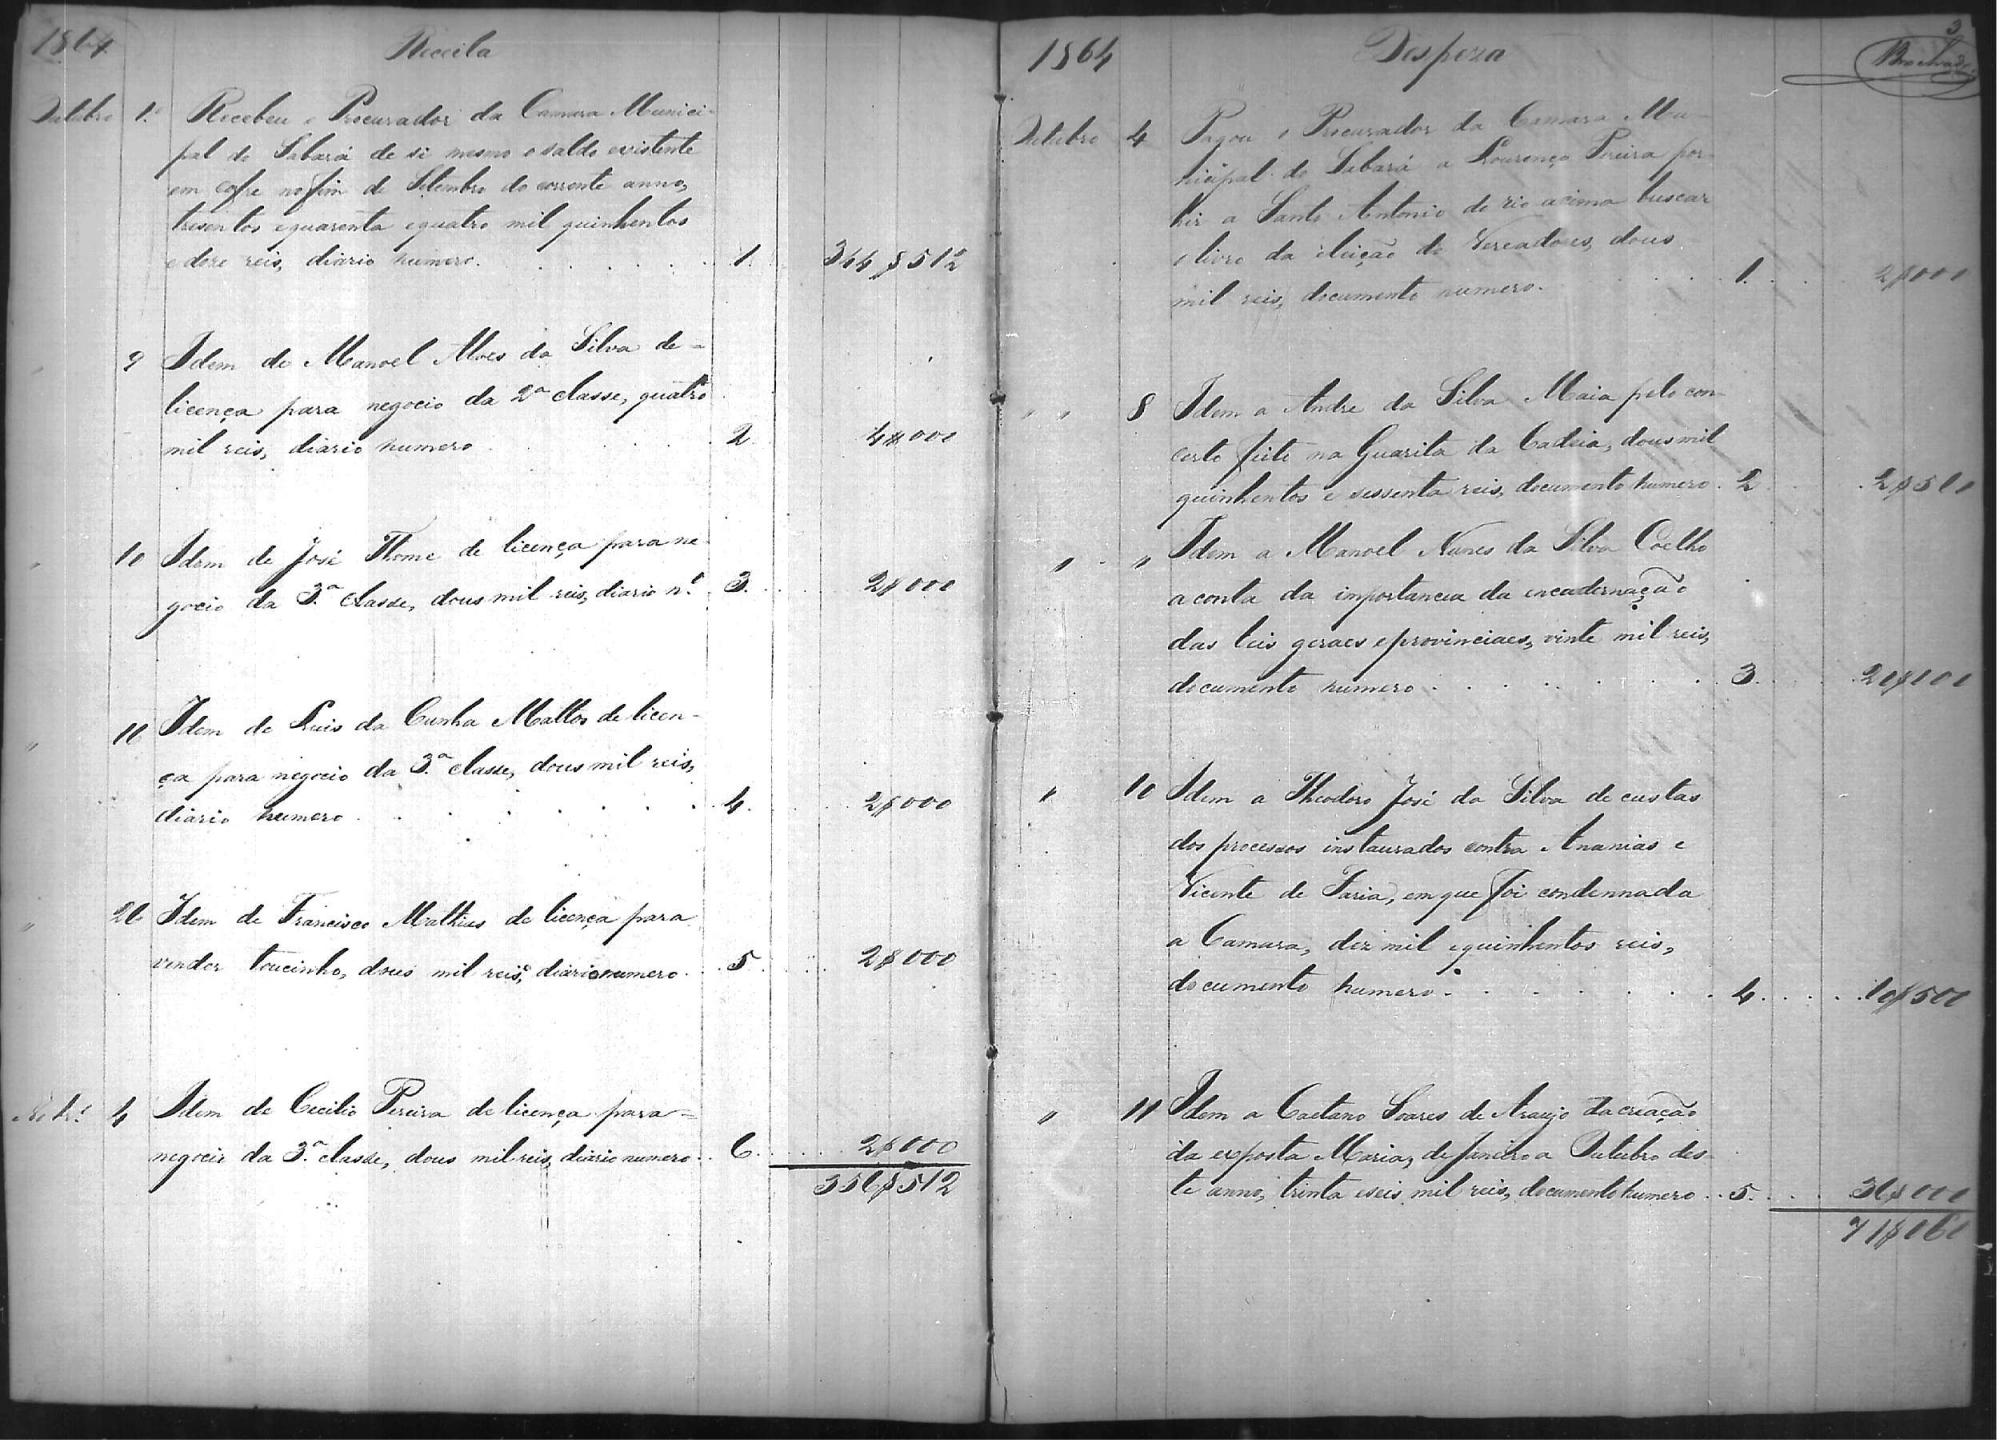 1864
Receita
Outubro 1.º Recebeu o Procurador da Camara Munici-
pal de Sabará de si mesmo o saldo existente
em cofre no fim de Setembro do corrente anno,
tresentos e quarenta e quatro mil quinhentos
e doze reis, diario numero. 1. 344$512
9 Idem de Manoel Alves da Silva de-
licença para negocio da 2ª classe, quatro
mil reis, diario numero 2. 4$000
" 10 Idem de José Thome de licença para ne-
gocio da 3.ª classe, dous mil reis, diario nº 3. 2$000
" 11 Idem de Luis da Cunha Mattos de licen-
ça para negocio da 3.ª classe, dous mil reis,
diario numero 4. 2$000
" 26 Idem de Francisco Mathias de licença para
vender toucinho, dous mil reis, diario numero 5 2$000
Nobrº 4 Idem de Cecilio Pereira de licença para-
negocio da 3.ª classe, dous mil reis, diario numero 6. 2$000
356$512
3
1864
Despeza
Outubro 4 Pagou o Procurador da Camara Mu-
nicipal de Sabará a Lourenço Pereira por
hir a Santo Antonio do rio acima buscar
o livro da eleição de Vereadores, dous
mil reis, documento numero. 1. 2$000
" " 8 Idem a Andre da Silva Maia pelo con-
certo feito na Guarita da Cadeia, dous mil
quinhentos e sessenta reis, documento numero. 2 2$560
" " Idem a Manoel Nunes da Silva Coelho
a conta da importancia da encadernação
das leis geraes e provinciaes, vinte mil reis,
documento numero 3. 20$000
" 10 Idem a Theodoro José da Silva de custas
dos processos instaurados contra Ananias e
Vicente de Faria, em que foi condennada
a Camara, dez mil e quinhentos reis,
documento numero. 4. 10$500
" 11 Idem a Caetano Soares de Araujo da criação
da exposta Maria, de Janeiro a Outubro des-
te anno, trinta e seis mil reis, documento numero 5. 36$000
71$060